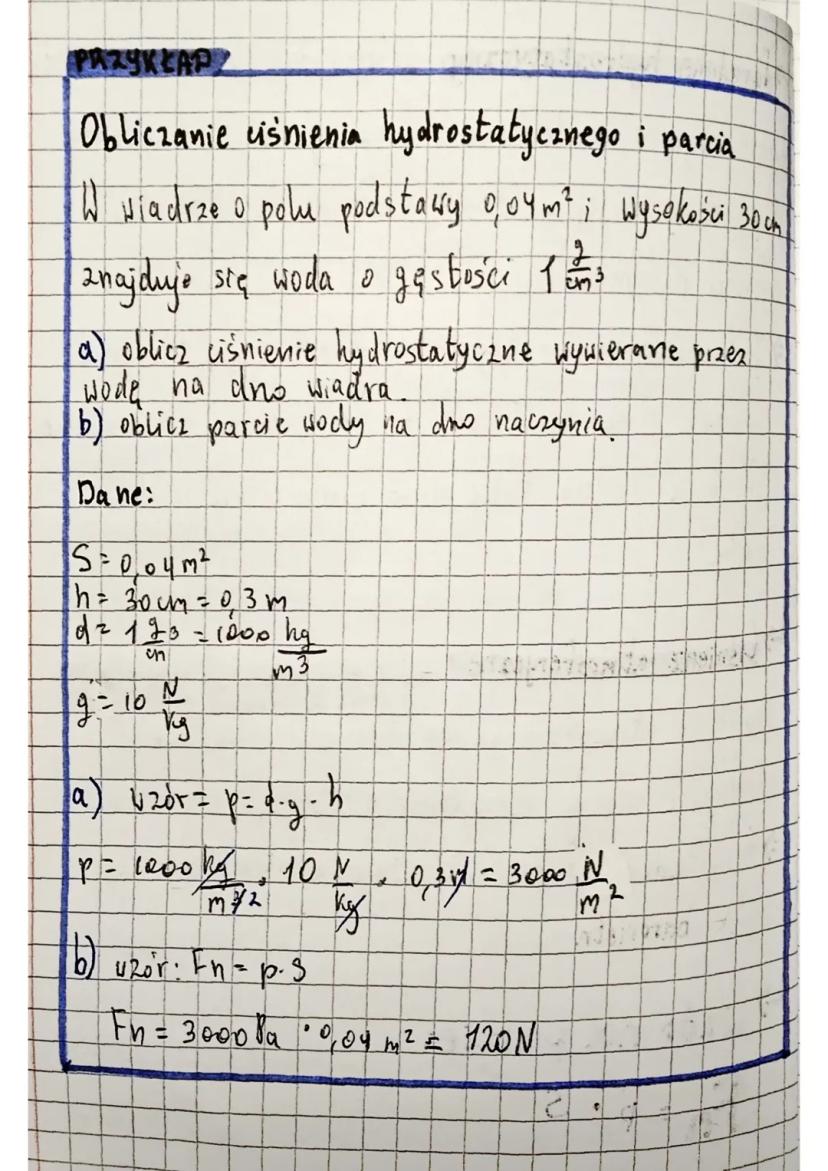 PRZYKŁAD
Obliczanie ciśnienia hydrostatycznego i parcia
W wiadrze o polu podstawy 0,04 m² i wysokości 30 cm
znajduje się woda o gęstości 1 g/cm³
a) oblicz ciśnienie hydrostatyczne wywierane przez
wodę na dno wiadra.
b) oblicz parcie wody na dno naczynia.
Dane:
S = 0,04 m²
h = 30 cm = 0,3 m
d = 1 g/cm³ = 1000 kg/m³
g = 10 N/kg
a) wzór = p = d · g · h
p = 1000 kg/m³ ² · 10 N/kg · 0,3 m = 3000 N/m²
b) wzór: Fn = p · S
Fn = 3000 Pa · 0,04 m² = 120 N